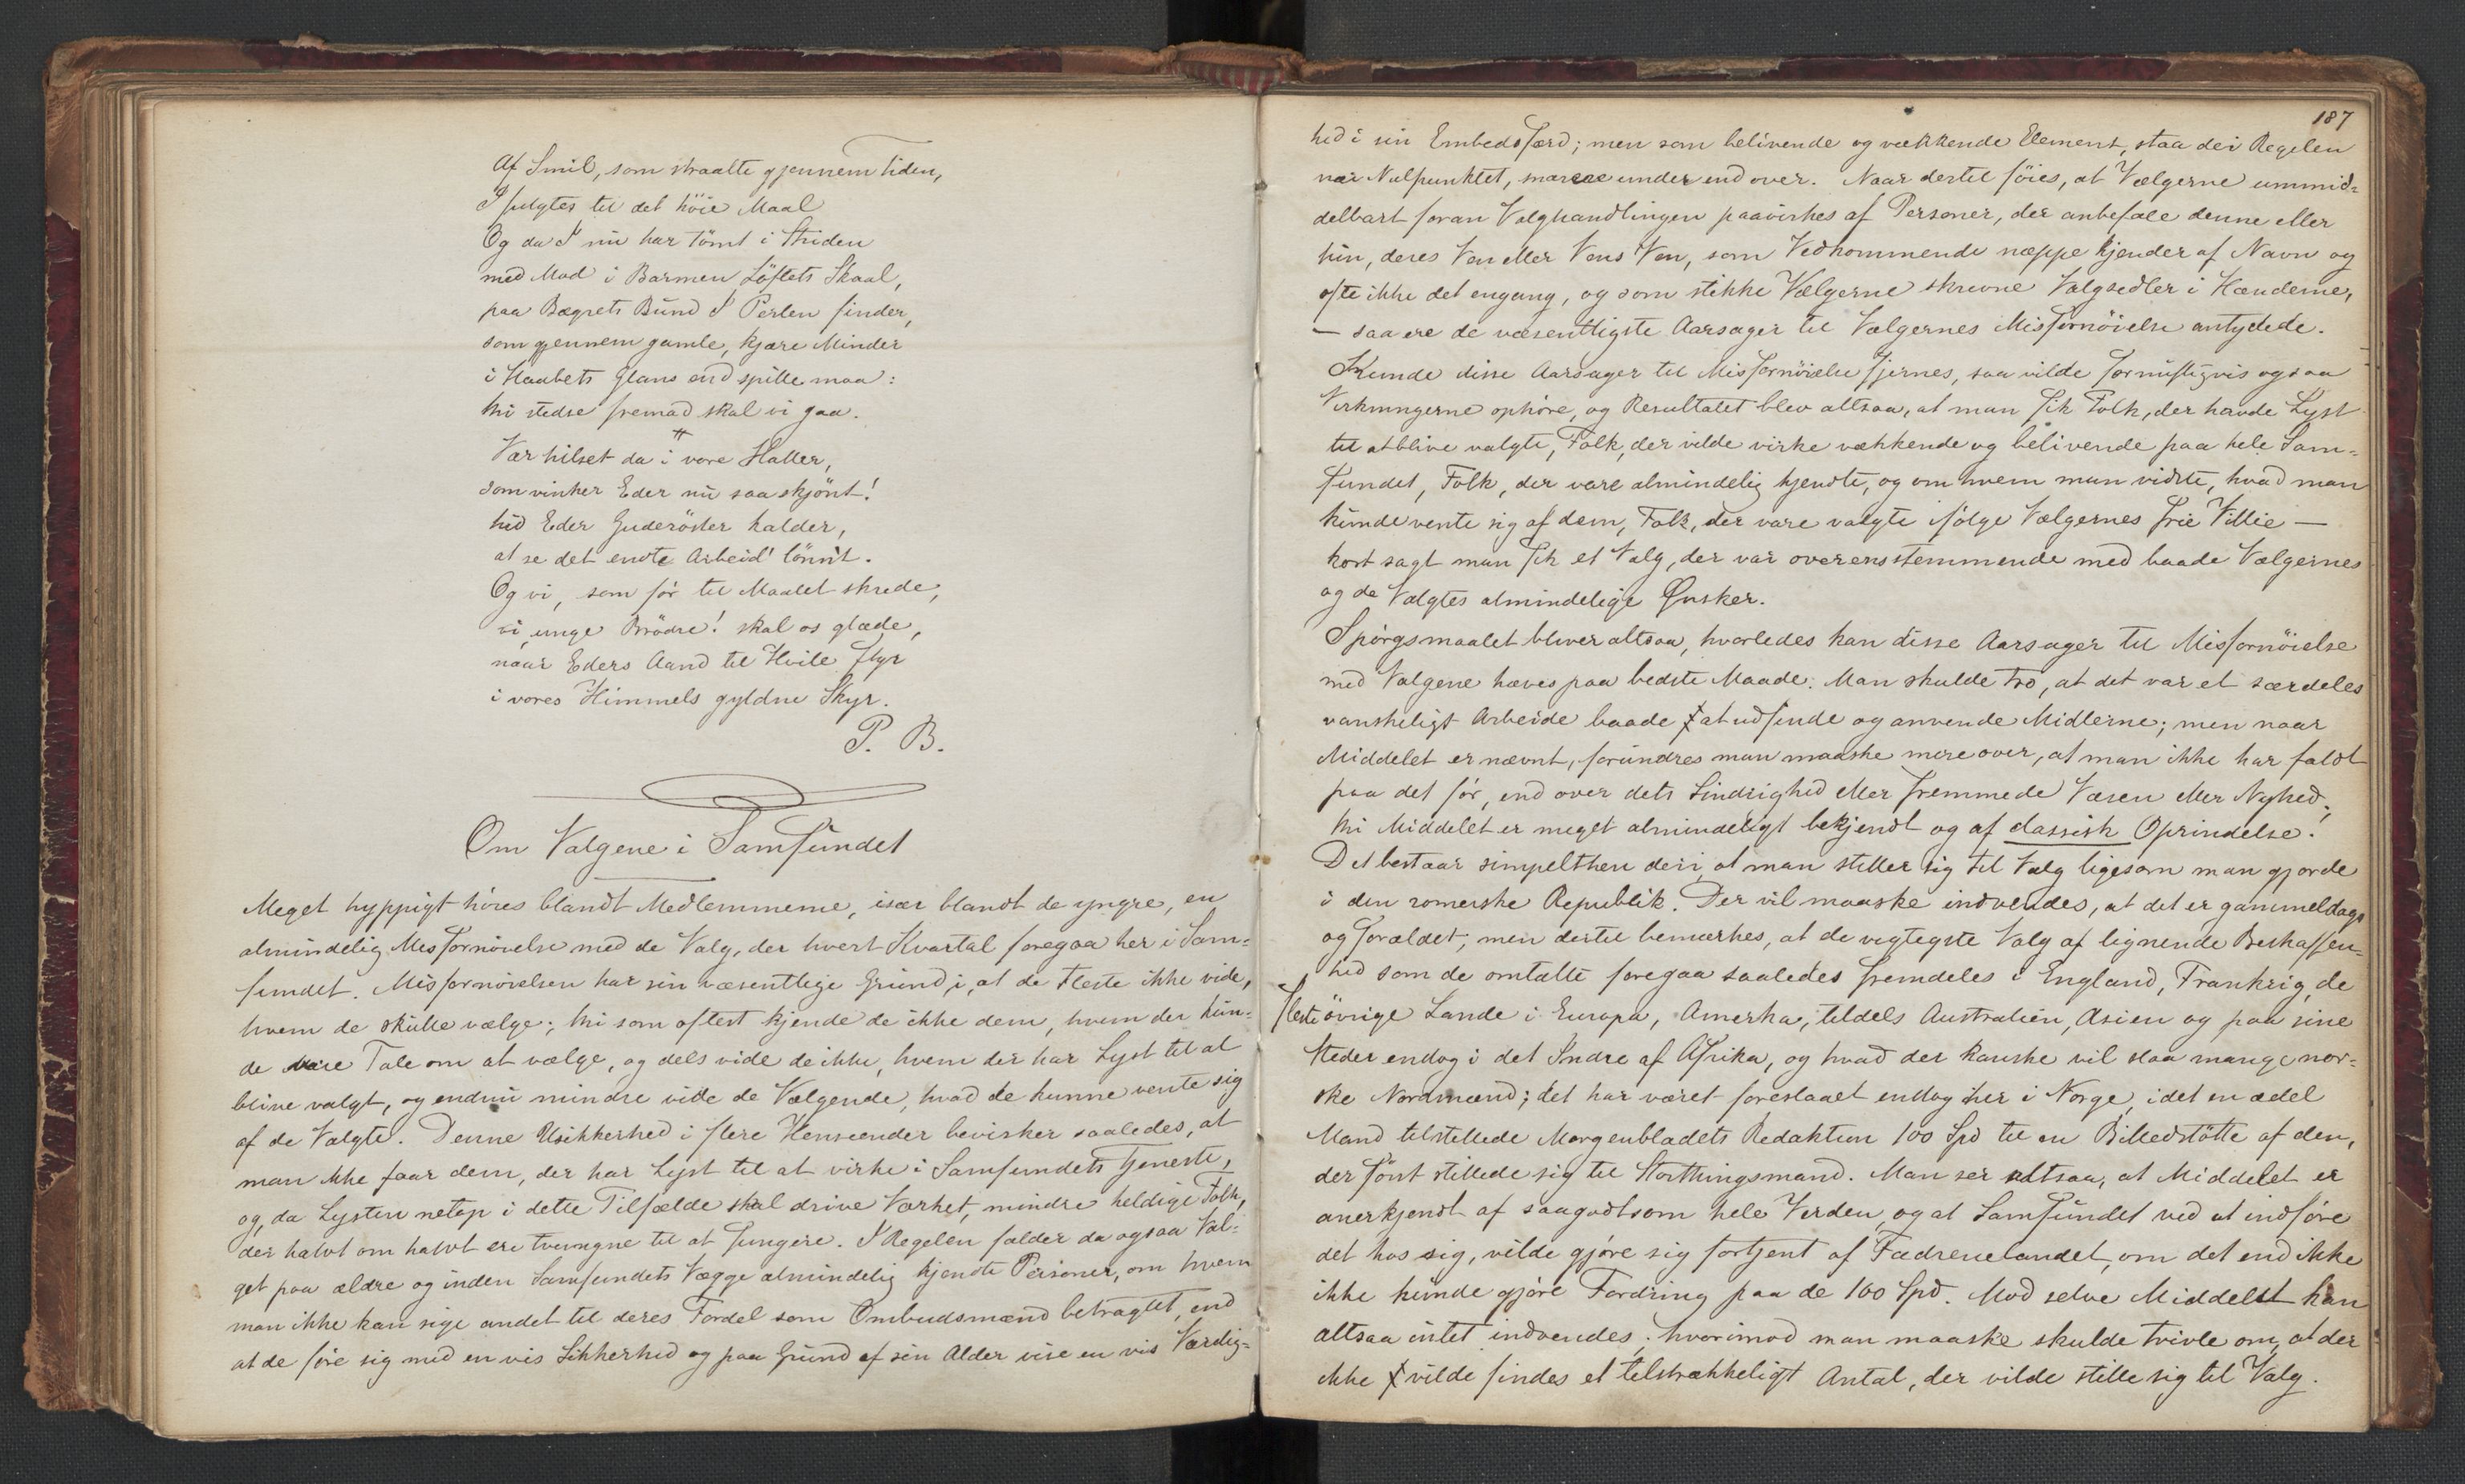 Af Smil, som straalte gjennem Tiden,
I fulgtes til det höie Maal
Og da I nu har tömt i Striden
med Mod i Barmen Löftets Skaal,
paa Bægrets Bund I Perlen finder,
som gjennem gamle, kjære Minder
i Haabets Glans end spille maa:
thi stedse fremad skal vi gaa.
Vær hilset da i vore Haller,
som vinker Eder nu saa skjönt!
hid Eder Guderöster kalder,
at se det endte Arbeid' lönnt.
Og vi, som før til Maalet skrede,
vi, unge Brödre! skal os glæde,
naar Eders Aand til Hvile flyr
i vores Himmels gyldne Skyr.
P. B.
Om Valgene i Samfundet
Meget hyppigt höres blandt Medlemmerne, især blandt de yngre, en
almindelig Misfornöielse med de Valg, der hvert Kvartal foregaa her i Sam-
fundet. Misfornöielsen har sin væsentlige Grund i, at de fleste ikke vide,
hvem de skulle vælge; thi som oftest kjende de ikke dem, hvem der kun-
de være Tale om at vælge, og dels vide de ikke, hvem der har Lyst til at
blive valgt, og endnu mindre vide de Vælgende, hvad de kunne vente sig
af de Valgte. Denne Usikkerhed i flere Henseender bevirker saaledes, at
man ikke faar dem, der har Lyst til at virke i Samfundets Tjeneste,
og, da Lysten netop i dette Tilfælde skal drive Værket, mindre heldige Folk,
der halvt om halvt ere tvungne til at fungere. I Regelen falder da ogsaa Val-
get paa ældre og inden Samfundets Vægge almindelig kjendte Personer, om hvem
man ikke kan sige andet til deres Fordel som Ombudsmænd betragtet, end
at de före sig med en vis Sikkerhed og paa Grund af sin Alder vise en vis Værdig-
187
hed i sin Embedsfærd; men som belivende og vækkende Element, staa de i Regelen
nær Nulpunktet, snarere under end over. Naar dertil föies, at Vælgerne ummid-
delbart foran Valghandlingen paavirkes af Personer, der anbefale denne eller
hin, deres Ven eller Vens Ven, som Vedkommende neppe kjender af Navn og
ofte ikke det engang, og som stikke Vælgerne skrevne Valgsedler i Hænderne,
— saa ere de væsentligste Aarsager til Vælgernes Misfornöielse antydede.
Kunde disse Aarsager til Misfornöielse fjernes, saa vilde fornuftigvis ogsaa
Virkningerne ophöre, og Resultatet blev altsaa, at man fik Folk, der havde Lyst
til at blive valgte, Folk, der vilde virke vækkende og belivende paa hele Sam-
fundet, Folk, der vare almindelig kjendte, og om hvem man vidste, hvad man
kunde vente sig af dem, Folk, der vare valgte ifölge Vælgernes frie Villie —
kort sagt man fik et Valg, der var overensstemmende med baade Vælgernes
og de Valgtes almindelige Ønsker.
Spörgsmaalet bliver altsaa, hvorledes kan disse Aarsager til Misfornöielse
med Valgene hæves paa bedste Maade. Man skulde tro, at det var et særdeles
vanskeligt Arbeide baade at udfinde og anvende Midlerne; men naar
Middelet er nævnt, forundres man maaske mere over, at man ikke har faldt
paa det för, end over dets Sindrighed eller fremmede Væsen eller Nyhed;
thi Middelet er meget almindeligt bekjendt og af classisk Oprindelse.
Det bestaar simpelthen deri, at man stiller sig til Valg ligesom man gjorde
i den romerske Republik. Der vil maaske indvendes, at det er gammeldags
og forældet; men dertil bemærkes, at de vigtigste Valg af lignende Beskaffen-
hed som de omtalte foregaa saaledes fremdeles i England, Frankrig, de
fleste övrige Lande i Europa, Amerika, tildels Australien, Asien og paa sine
Steder endog i det Indre af Afrika, og hvad der kanske vil slaa mange nor-
ske Nordmænd; det har været foreslaaet endog her i Norge, idet en ædel
Mand tilstillede Morgenbladets Redaktion 100 Spd til en Billedstötte af den,
der först stillede sig til Storthingsmand. Man ser altsaa, at Middelet er
anerkjendt af saagodtsom hele Verden, og at Samfundet ved at indföre
det hos sig, vilde gjöre sig fortjent af Fædrenelandet, om det end ikke
ikke kunde gjöre Fordring paa de 100 Spd. Mod selve Middelet kan
altsaa intet indvendes; hvorimod man maaske skulde tvivle om, at der
ikke vilde findes et tilstrækkeligt Antal, der vilde stille sig til Valg.